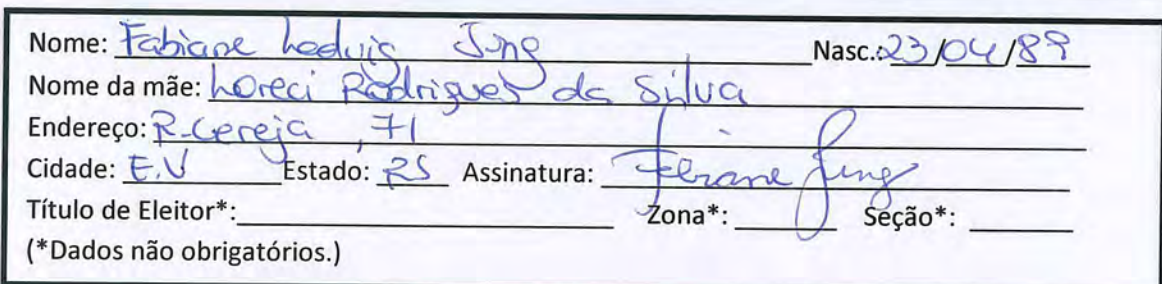 Nome: Fabiane Leduig Jung Nasc.: 23/04/89
Nome da mãe: Loreci Rodrigues da Silva
Endereço: R-Cereja, 71
Cidade: E.V Estado: RS Assinatura: Fabiane Jung
Título de Eleitor*: Zona*: Seção*:
(*Dados não obrigatórios.)